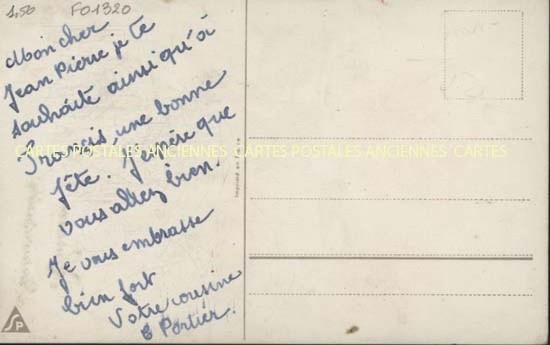 1,50 FO1320
Mon cher
Jean Pierre je te
souhaite ainsi qu'à
Francis une bonne
fête. J'espère que
vous allez bien.
Je vous embrasse
bien fort
Votre cousine
Portier.
CARTES POSTALES ANCIENNES CARTES POSTALES ANCIENNES CARTES
Imprimé en